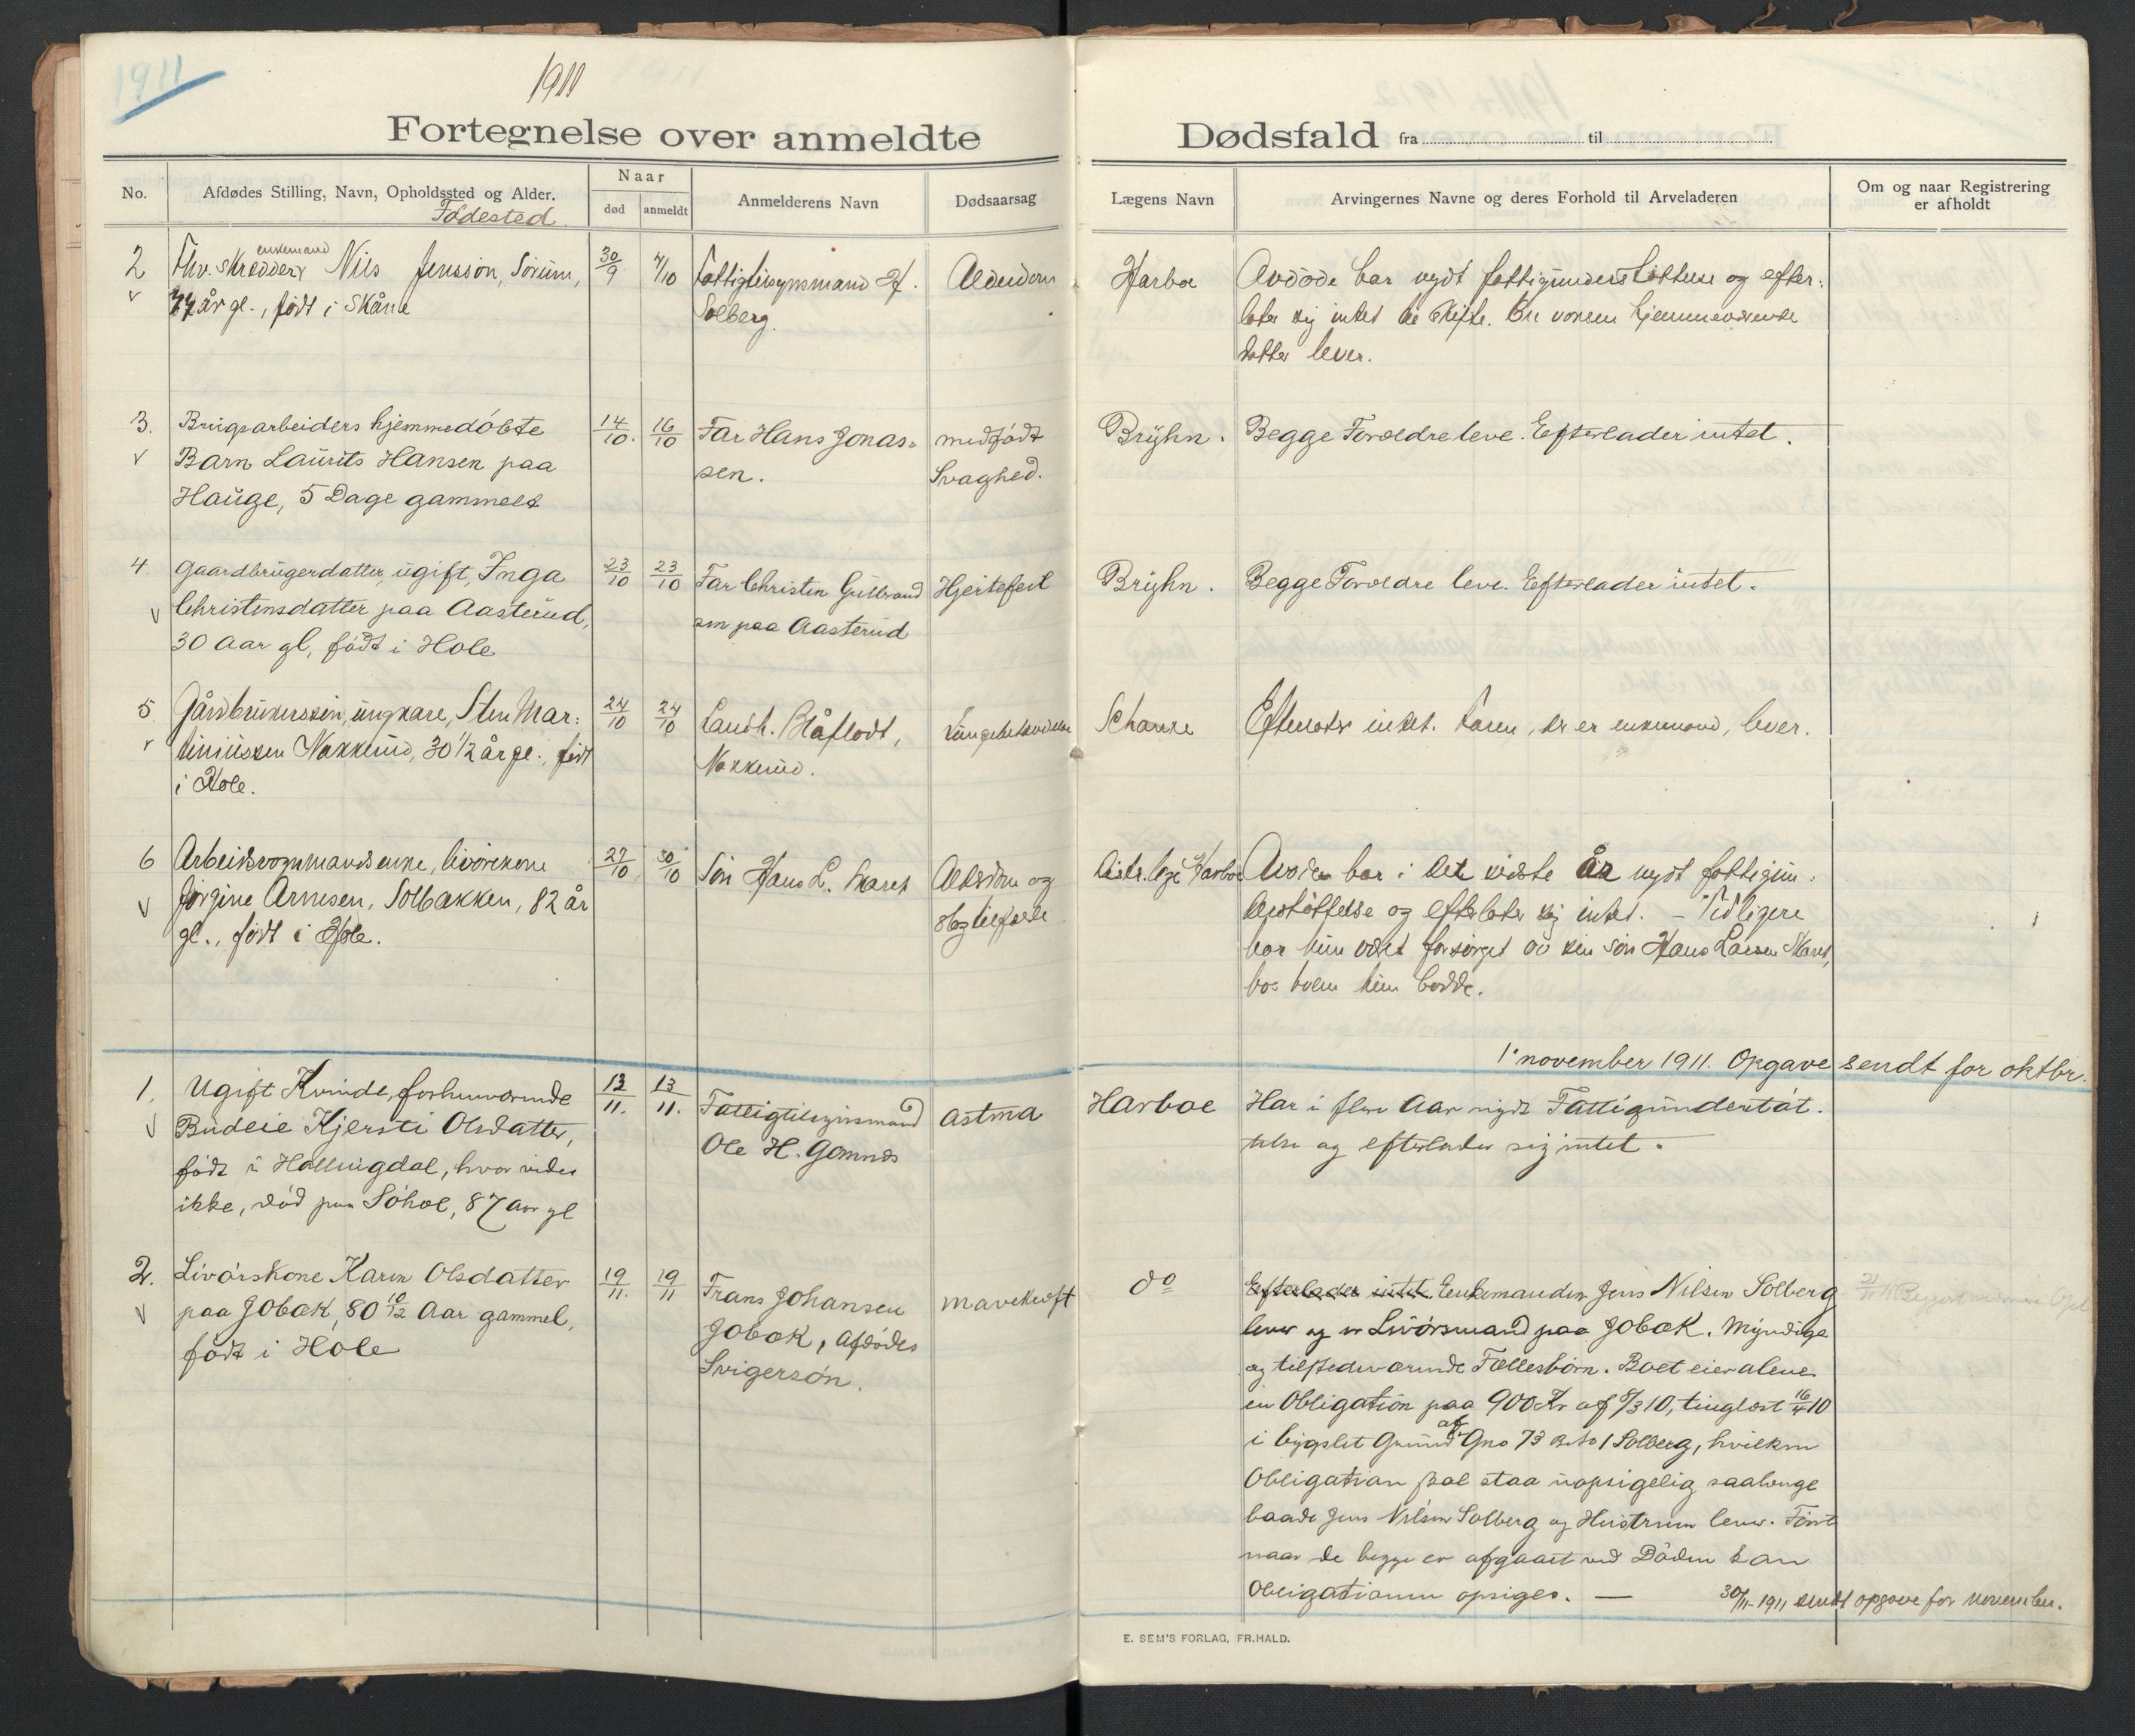 1911
1911
Fortegnelse over anmeldte Dødsfald fra til
No.
Afdødes Stilling, Navn, Opholdssted og Alder.
Fødested
Naar
død
anmeldt
Anmelderens Navn
Dødsaarsag
Lægens Navn
Arvingernes Navne og deres Forhold til Arveladeren
Om og naar Registrering
er afholdt
2
enkemand
Fhv. skrædder Nils Jenssøn, Sørum,
77 år gl., født i Skåne
30/9
4/10
Fattigtilsynsmand H.
Solberg.
Alderdom
Harboe
Avdøde har nydt fattigunderstøttelse og efter-
later sig intet til skifte. En voksen hjemmeværende
datter lever.
3.
Brugsarbeiders hjemmedøbte
Barn Laurits Hansen paa
Hauge, 5 Dage gammelt
14/10.
16/10
Far Hans Jonas-
sen.
medfødt
Svaghed.
Bryhn.
Begge Forældre leve. Efterlader intet.
4.
Gaardbrugerdatter, ugift, Inga
Christensdatter paa Aasterud,
30 Aar gl, født i Hole
23/10
23/10
Far Christen Gulbrand
sen paa Aasterud
Hjertefeil
Bryhn.
Begge Forældre leve. Efterlader intet.
5
Gårdbrukersøn, ungkare, Sten Mar-
tiniussen Nakkerud, 30 1/2 år gl., født
i Hole.
24/10
24/10
Landh. Blåflodt,
Nakkerud.
Lungebetændelse
Schanke
Efterlater intet. Faren, der er enkemand, lever.
6
Arbeidsformandsenke, livørekone
Jørgine Arnesen, Solbakken, 82 år
gl., født i Hole.
29/10
30/10
Søn Hans L. Skaret
Alderdom og
slagtilfælle
Distr. læge Harboe
Avdøde har i det sidste år nydt fattigun-
derstøttelse og efterlater sig intet. – Tidligere
har hun været forsørget av sin søn Hans Larsen Skaret,
hos hvem hun bodde.
1. november 1911. Opgave sendt for oktbr.
1.
Ugift Kvinde, forhenværende
Budeie Kjersti Olsdatter,
født i Hallingdal, hvor vides
ikke, død paa Søhol, 87 Aar gl
13/11.
13/11.
Fattigtilsynsmand
Ole H. Gomnæs
astma
Harboe
Har i flere Aar nydt Fattigunderstøt-
telse og efterlader sig intet.
2.
Livørskone Karen Olsdatter
paa Jobak, 80 10/12 Aar gammel,
født i Hole
19/11.
19/11
Frans Johansen
Jobak, Afdødes
Svigersøn.
mavekræft
do
Efterlader intet. Enkemanden Jens Nilsen Solberg
lever og er Livørsmand paa Jobak. Myndige
og tilstedeværende Fællesbørn. Boet eier alene
en Obligation paa 900 Kr af 8/3 10, tinglæst 16/4 10
i bygslet Grund af Gno 73 Bno 1 Solberg, hvilken
Obligation skal staa uopsigelig saalænge
baade Jens Nilsen Solberg og Hustruen lever. Først
naar de begge er afgaaet ved Døden kan
Obligationen opsiges. —
30/11-1911 sendt opgave for november.
E. SEM'S FORLAG, FR.HALD.